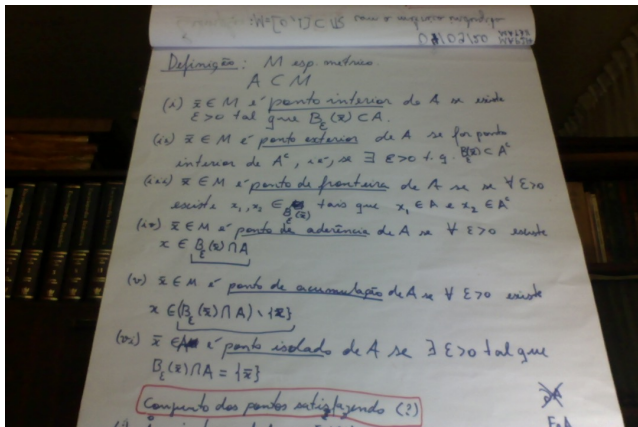 Definição: M esp. métrico.
A ⊂ M
(i) x̄ ∈ M é ponto interior de A se existe
ε>0 tal que B_ε(x̄) ⊂ A.
(ii) x̄ ∈ M é ponto exterior de A se for ponto
interior de A^c, i.é, se ∃ ε>0 t.q. B_ε(x̄) ⊂ A^c
(iii) x̄ ∈ M é ponto de fronteira de A se se ∀ ε>0
existe x₁, x₂ ∈ B_ε(x̄) tais que x₁ ∈ A e x₂ ∈ A^c
(iv) x̄ ∈ M é ponto de aderência de A se ∀ ε>0 existe
x ∈ B_ε(x̄) ∩ A
(v) x̄ ∈ M é ponto de acumulação de A se ∀ ε>0 existe
x ∈ (B_ε(x̄) ∩ A) \ {x̄}
(vi) x̄ ∈ A é ponto isolado de A se ∃ ε>0 tal que
B_ε(x̄) ∩ A = {x̄}
Conjunto dos pontos satisfazendo (?)